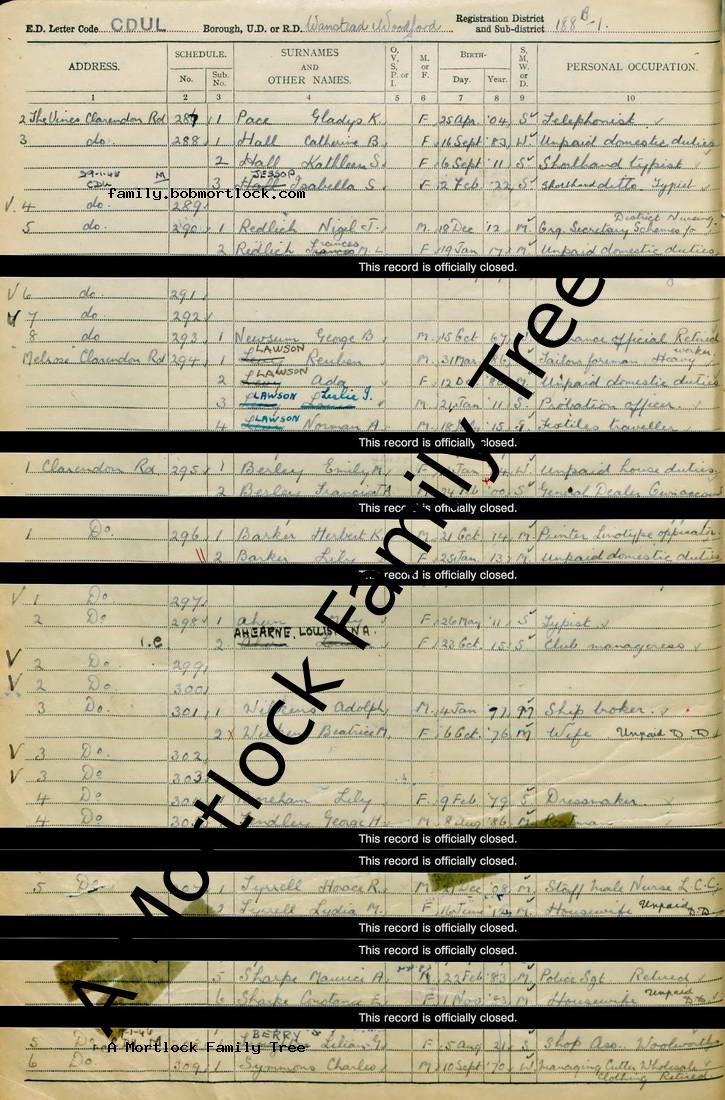 E.D. Letter Code CDUL Borough, U.D. or R.D. Wanstead & Woodford Registration District and Sub-district 188B-1.
ADDRESS. SCHEDULE. SURNAMES AND OTHER NAMES. O, V, S, P. or I M. or F. BIRTH- S, M, W, or D. PERSONAL OCCUPATION.
No. Sub. No. Day. Year.
1 2 3 4 5 6 7 8 9 10
2 The Vines Clarendon Rd 287 1 Pace Gladys K. F 25 Apr. '04 S Telephonist
3 do. 288 1 Hall Catherine B F 16 Sept '83 W. Unpaid domestic duties
2 Hall Kathleen S F 6 Sept '11 S Shorthand typist
29-1-46 M JESSOP
CDU 3 Hall Isabella S F 2 Feb '22 S Shorthand ditto Typist
family.bobmortlock.com
V. 4 do 289
5 do. 290 1 Redlich Nigel T. M. 18 Dec '12 M. Org. Secretary Schemes for District Nursing
2 Redlich Frances M. L F 19 Jan '17 M Unpaid domestic duties
This record is officially closed.
V 6 do 291
V 7 do 292
8 do 293 1 Newsum George B M. 15 Oct 67 official Retired
Melrose Clarendon Rd 294 1 LAWSON Reuben M. 31 Mar 86 Tailors foreman Heavy worker
2 LAWSON Ada F 12 M. Unpaid domestic duties
3 LAWSON Leslie J. M. 21 Jan '11 S. Probation officer.
4 LAWSON Norman A M. 18 '15 S Textiles traveller
This record is officially closed.
1 Clarendon Rd 295 1 Besley Emily M. F Jan W. Unpaid house duties
2 Besley Francis J A M '00 S General Dealer Own account
This record is officially closed.
1 Do. 296 1 Barker Herbert K. M. 21 Oct 14 M Printer Linotype operator
2 Barker Lily F 25 Jan 13 M Unpaid domestic duties
This record is officially closed.
V 1 Do 297
2 Do 298 1 F 26 May '11 S Typist
AHEARNE, LOUISIANNA.
i.e 2 F 23 Oct. 15 S Club manageress
V 2 Do 299
V 2 Do 300
3 Do. 301 1 Wilkens Adolph M. 4 Jan '77 M Ship broker.
2 x Wilkens Beatrice M. F. 6 Oct. '76 M Wife Unpaid D. D
V 3 Do 302
V 3 Do 303
4 Do 30 Boreham Lily F. 9 Feb '79 S. Dressmaker
4 Do. 30 Hendley George H. M. 8 Aug '86 M
This record is officially closed.
This record is officially closed.
5 Do 1 Tyrrell Horace R. M. 21 Dec '08 M. Staff Male Nurse L.C.C.
2 Tyrrell Lydia M. F. 16 June M. Housewife Unpaid D.D
This record is officially closed.
This record is officially closed.
5 Sharpe Maurice A. M 22 Feb '83 M Police Sgt Retired
6 Sharpe Constance E. F 1 Nov M. Housewife Unpaid D.D
This record is officially closed.
BERRY
5 Do Lilian G. F. 5 Aug 21 S Shop Ass. Woolworths
A Mortlock Family Tree
6 Do. 309 1 Symmons Charles M. 10 Sept '70 W. Managing Cutter Wholesale Clothing Retired
A Mortlock Family Tree